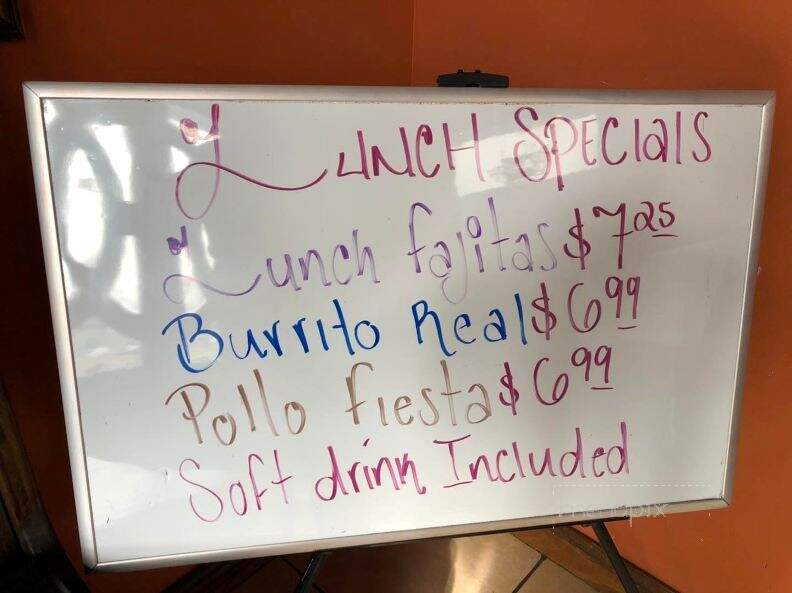 LUNCH SPECIALS
Lunch fajitas $7.25
Burrito Real $6.99
Pollo fiesta $6.99
Soft drink Included